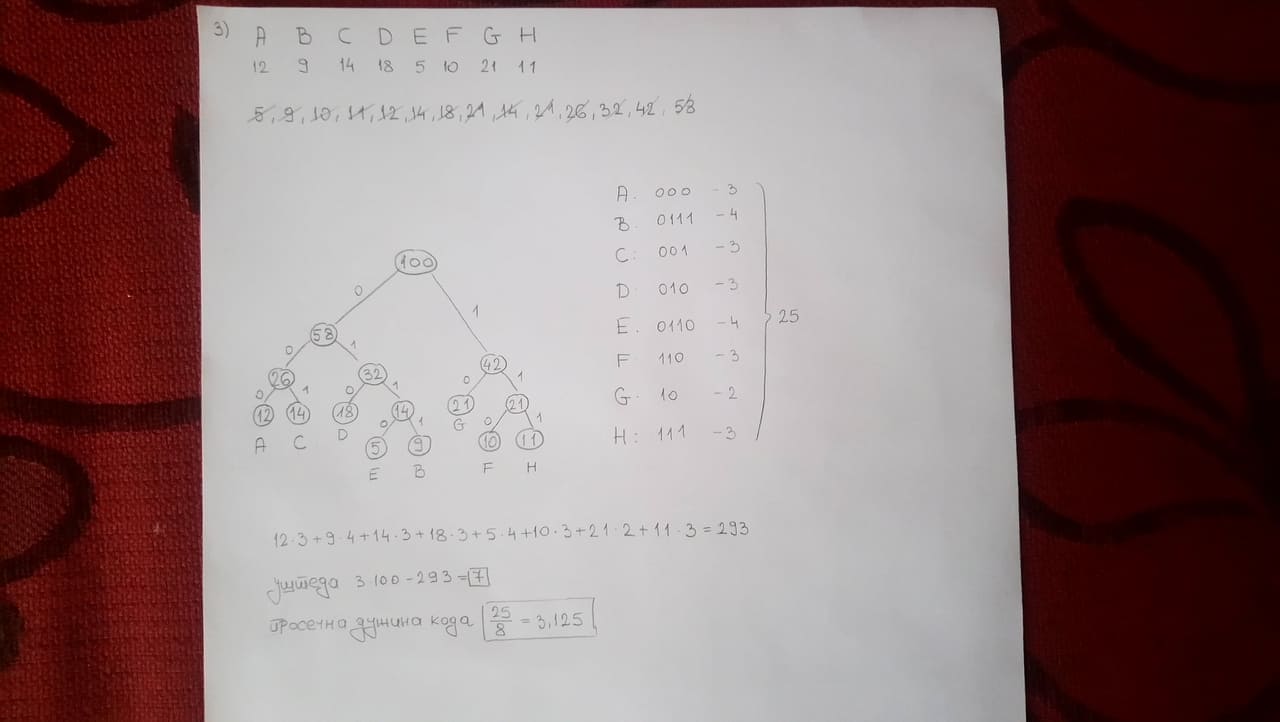 3) A B C D E F G H
12 9 14 18 5 10 21 11
5, 9, 10, 11, 12, 14, 18, 21, 14, 21, 26, 32, 42, 58
100
0 1
58
0 1
42
0 1
26
0 1
32
0 1
12 14 18 14 21 21
0 1 0 1
A C D 5 9 G 10 11
E B F H
A. 000 - 3
B. 0111 - 4
C: 001 - 3
D: 010 - 3
E. 0110 - 4
F 110 - 3
G. 10 - 2
H: 111 - 3
25
12·3+9·4+14·3+18·3+5·4+10·3+21·2+11·3=293
уштеда 3·100-293=7
просечна дужина кода 25/8 = 3,125